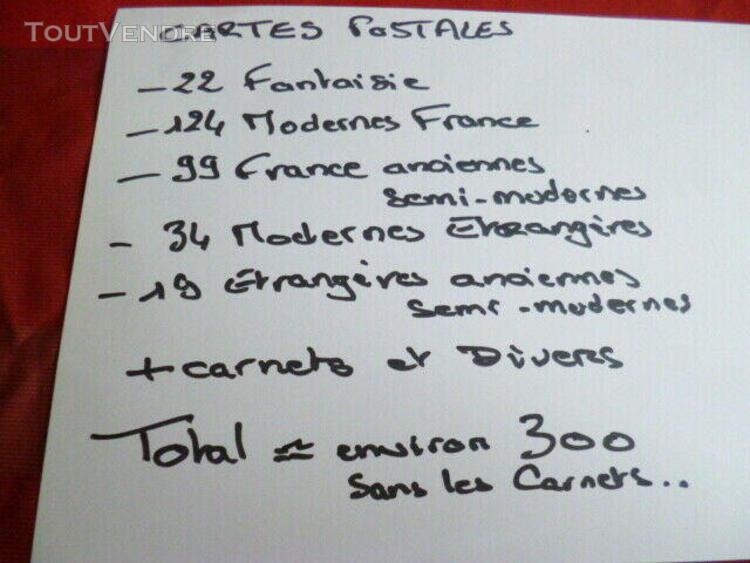 TOUTVENDRE
CARTES POSTALES
- 22 Fantaisie
- 124 Modernes France
- 99 France anciennes
semi-modernes
- 34 Modernes Etrangères
- 19 Etrangères anciennes
semi-modernes
+ carnets et Divers
Total ≃ environ 300
Sans les Carnets..